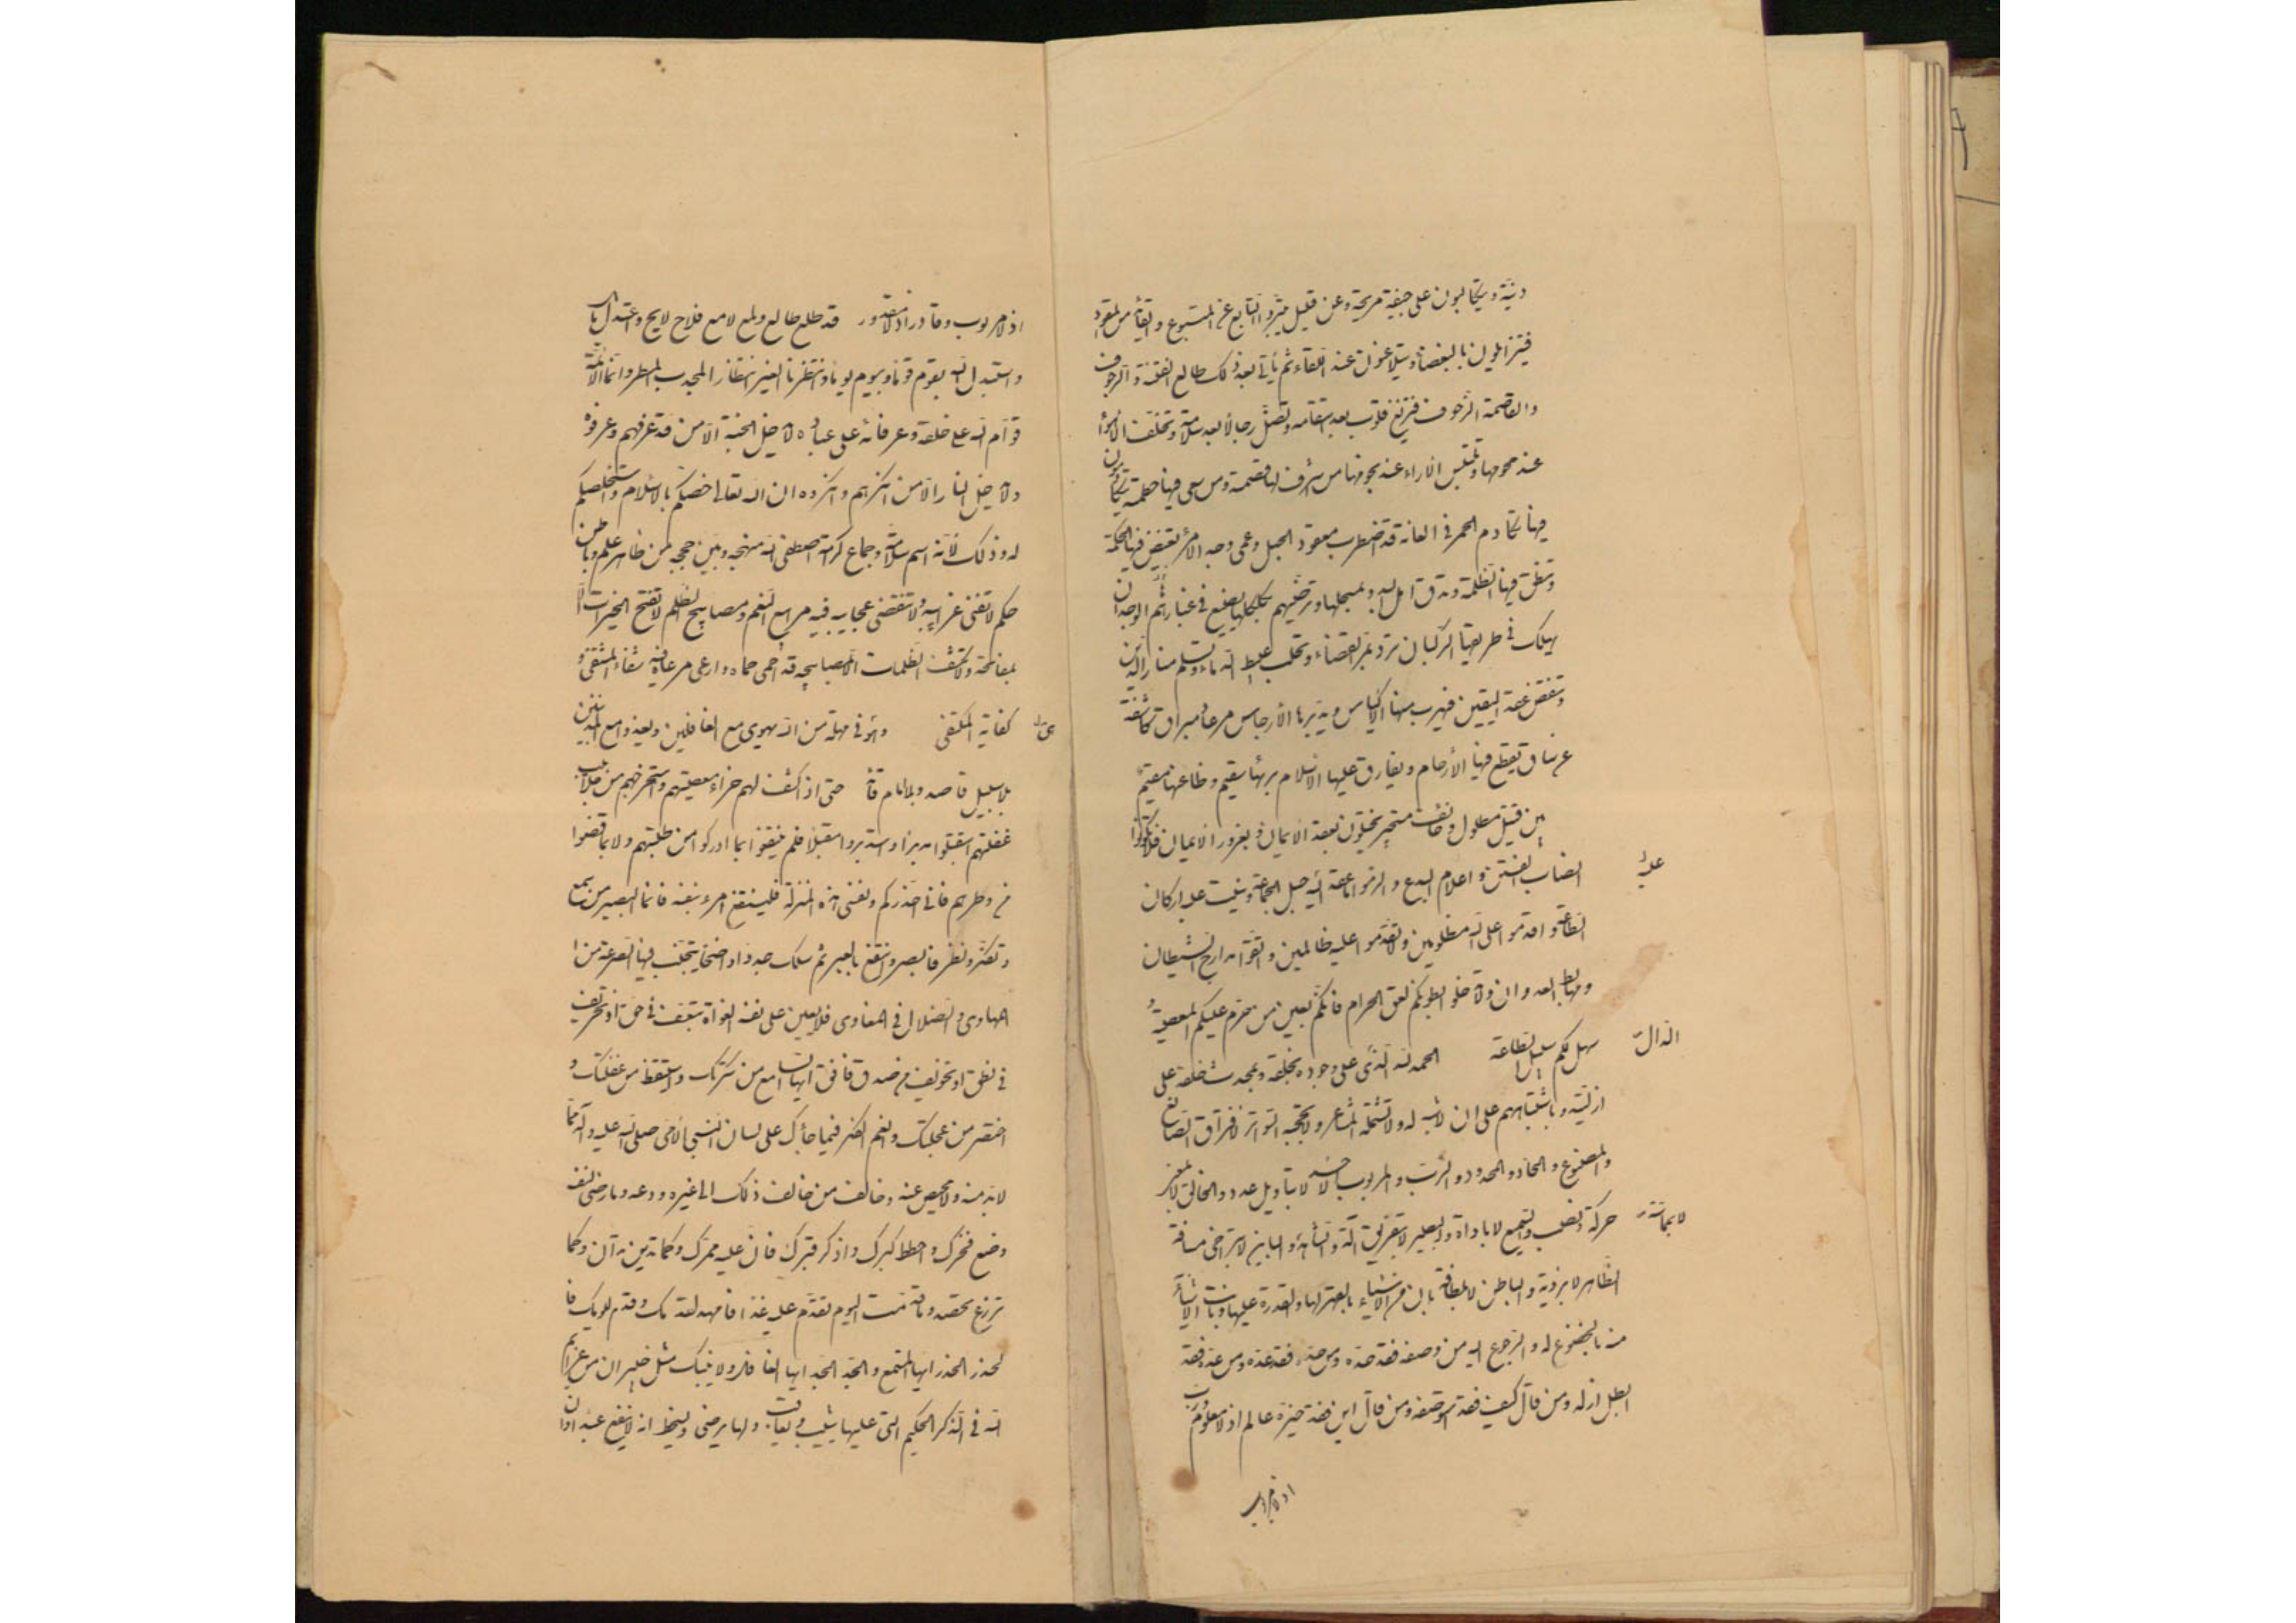 دنيّة ويتكالبون على جيفة مريحة وعن قليل يتبرّأ التابع عن المتبوع والقائد من المقود
فيتزايلون بالبغضاء ويتلاعنون عند اللقاء ثم يأتي بعد ذلك طالع الفتنة الرجوف
والقاصمة الزحوف فتزيغ قلوب بعد استقامة وتضلّ رجال بعد سلامة وتختلف الأهواء
عند هجومها وتلتبس الآراء عند نجومها من أشرف لها قصمته ومن سعى فيها حطمته يتكادمون
فيها تكادم الحمر في العانة قد اضطرب معقود الحبل وعمى وجه الأمر تغيض فيها الحكمة
وتنطق فيها الظلمة وتدق أهل البدو بمسحلها وترضّهم بكلكلها يضيع في غبارها الوحدان
يهلك في طريقها الركبان ترد بمرّ القضاء وتحلب عبيط الدماء وتثلم منار الدين
وتنقض عقد اليقين فيهرب منها الأكياس ويدبّرها الأرجاس مرعاد مبراق كاشفة
عن ساق تقطع فيها الأرحام ويفارق عليها الاسلام بريئها سقيم وظاعنها مقيم
بين قتيل مطلول وخائف مستجير يختلون بعقد الايمان وبغرور الايمان فلا تكونوا
أنصاب الفتن واعلام البدع والزموا ما عقد عليه حبل الجماعة وبنيت عليه اركان
عليه
الطاعة واقدموا على الله مظلومين ولا تقدموا عليه ظالمين واتقوا مدارج الشيطان
ومهابط العدوان ولا تدخلوا بطونكم لعق الحرام فانكم بعين من حرّم عليكم المعصية و
سهل لكم سبيل الطاعة الحمد لله الدّال على وجوده بخلقه وبمحدث خلقه على
الدال
ازليّته وباشتباههم على ان لا شبه له ولا تشتمله المشاعر ولا تحجبه السواتر لافتراق الصانع
والمصنوع والحاد والمحدود والرّب والمربوب الأحد لا بتأويل عدد والخالق لا بمعنى
حركة ونصب والسميع لا باداة والبصير لا بتفريق آلة والشاهد لا بمماسّة والباين لا بتراخى مسافة
لا بمماسّة
الظاهر لا برؤية والباطن لا بلطافة بان من الأشياء بالقهر لها والقدرة عليها وبانت الأشياء
منه بالخضوع له والرجوع اليه من وصفه فقد حدّه ومن حدّه فقد عدّه ومن عدّه فقد
ابطل ازله ومن قال كيف فقد استوصفه ومن قال اين فقد حيّزه عالم اذ لا معلوم وربّ
اذ لا مربوب
اذ لا مربوب وقادر اذ لا مقدور قد طلع طالع ولمع لامع فلاح لايح واعتدل مايل
واستبدل الله بقوم قوما وبيوم يوما وانتظرنا الغير انتظار المجدب المطر وانما الأئمة
قوّام الله على خلقه وعرفاؤه على عباده لا يدخل الجنة الاّ من قد عرفهم وعرفوه
ولا يدخل النار الاّ من انكرهم وانكروه ان الله تعالى خصّكم بالاسلام واستخلصكم
له وذلك لأنه اسم سلامة وجماع كرامة اصطفى الله منهجه وبيّن حججه من ظاهر علم وباطن
حكم لا تفنى غرايبه ولا تنقضى عجايبه فيه مرابيع النعم ومصابيح الظلم لا تفتح الخيرات الاّ
بمفاتحه ولا تكشف الظلمات الاّ بمصابيحه قد أحمى حماه وارعى مرعاه فيه شفاء المشتفى و
كفاية المكتفى وهو في مهلة من الله يهوى مع الغافلين ويغدو مع المذنبين
بلا سبيل قاصد ولا امام قائد حتى اذا كشف لهم جزاء معصيتهم واستخرجهم من جلابيب
غفلتهم استقبلوا مدبرا واستدبروا مقبلا فلم ينتفعوا بما ادركوا من طلبتهم ولا بما قضوا
من وطرهم فانى احذّركم ونفسى هذه المنزلة فلينتفع امرء بنفسه فانما البصير من سمع
وتفكّر ونظر فابصر وانتفع بالعبر ثم سلك جددا واضحا يتجنّب فيها الصرعة من
المهاوى والضلال في المغاوى فلا يعين على نفسه الغواة بتعسّف في حق او تحريف
في نطق او تخوف من صدق فافق ايها السامع من سكرتك واستيقظ من غفلتك و
اختصر من عجلتك وانعم الفكر فيما جاءك على لسان النبي الأمي صلى الله عليه وآله مما
لا بد منه ولا محيص عنه وخالف من خالف ذلك الى غيره ودعه وما رضى لنفسه
وضع فخرك واحطط كبرك واذكر قبرك فان عليه ممرّك وكما تدين تدان وكما
تزرع تحصد وما قدّمت اليوم تقدم عليه غدا فامهد لقدمك وقدّم ليومك فا
لحذر الحذر ايها المستمع والجد الجد ايها الغافل ولا ينبئك مثل خبير ان من عزايم
الله في الذكر الحكيم التى عليها يثيب ويعاقب ولها يرضى ويسخط انه لا ينفع عبدا وان